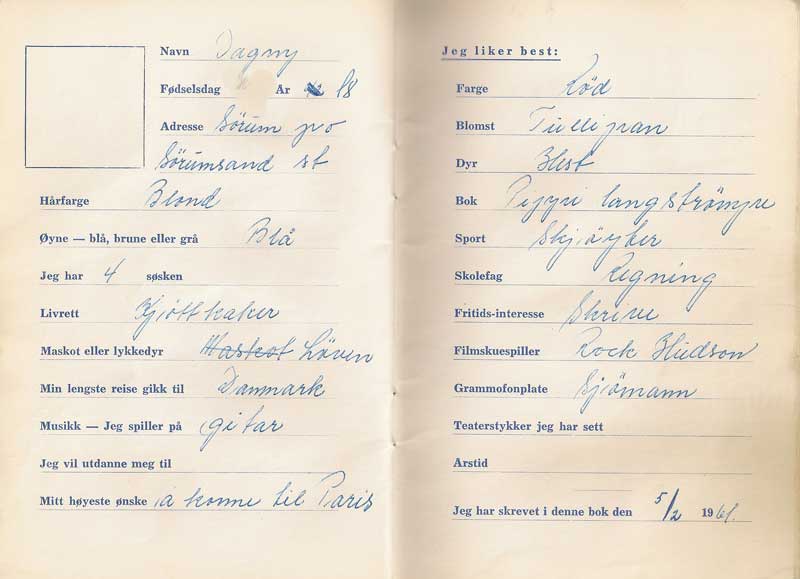 Navn Dagny
Fødselsdag Ar 18
Adresse Sörum po
Sörumsand st
Hårfarge Blond
Øyne — blå, brune eller grå Blå
Jeg har 4 søsken
Livrett Kjöttkaker
Maskot eller lykkedyr Maskot Löven
Min lengste reise gikk til Danmark
Musikk — Jeg spiller på gitar
Jeg vil utdanne meg til
Mitt høyeste ønske å komme til Paris
Jeg liker best:
Farge Röd
Blomst Tullipan
Dyr Hest
Bok Pippi langströmpe
Sport Skjöyter
Skolefag Regning
Fritids-interesse Skrive
Filmskuespiller Rock Hudson
Grammofonplate Sjömann
Teaterstykker jeg har sett
Arstid
Jeg har skrevet i denne bok den 5/2 1961.